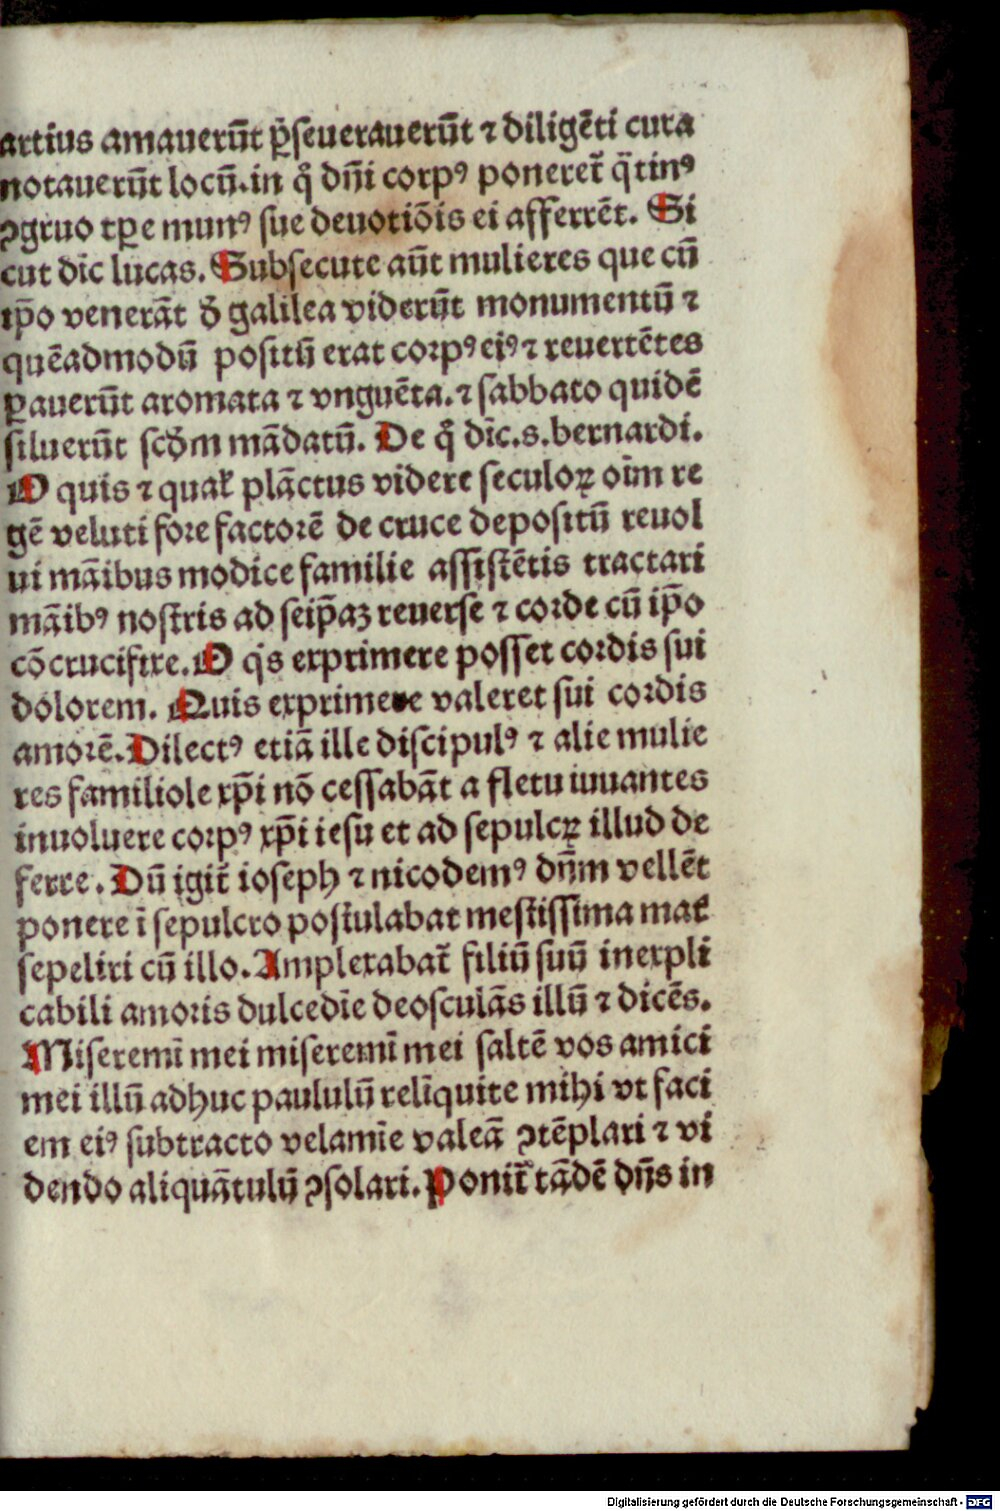 artius amauerūt ꝑ̄seuerauerūt ⁊ diligēti cura
notauerūt locū.in q̊ dn̄i corpꝰ poneret̄ q̄tinꝰ
ꝯgruo tꝑe munꝰ sue deuotiōis ei afferrēt. Si
cut dic̄ lucas. Subsecute aūt mulieres que cū
ip̄o venerāt đ galilea viderūt monumentū ⁊
quēadmodū positū erat corpꝰ eiꝰ ⁊ reuertētes
ꝑauerūt aromata ⁊ vnguēta.⁊ sabbato quidē
siluerūt scđm mādatū. De q̊ dic̄.s.bernardi.
O quis ⁊ qual̄ plāctus videre seculoꝝ oīm re
gē veluti fore factorē de cruce depositū reuol
ui māibus modice familie assistētis tractari
māibꝰ nostris ad seip̄aꝫ reuerse ⁊ corde cū ip̄o
cōcrucifixe. O q̇s exprimere posset cordis sui
dolorem. Quis exprimere valeret sui cordis
amorē. Dilectꝰ etiā ille discipulꝰ ⁊ alie mulie
res familiole xp̄i nō cessabāt a fletu iuuantes
inuoluere corpꝰ xp̄i iesu et ad sepulcꝝ illud de
ferre. Dū igit̄ ioseph ⁊ nicodemꝰ dn̄m vellēt
ponere ī sepulcro postulabat mestissima mat̄
sepeliri cū illo. Amplexabat̄ filiū suū inexpli
cabili amoris dulcedīe deosculās illū ⁊ dicēs.
Miseremī mei miseremī mei saltē vos amici
mei illū adhuc paululū relīquite mihi vt faci
em eiꝰ subtracto velamīe valeā ꝯtēplari ⁊ vi
dendo aliquātulū ꝯsolari. Ponit̄ tādē dn̄s in
Digitalisierung gefördert durch die Deutsche Forschungsgemeinschaft - DFG